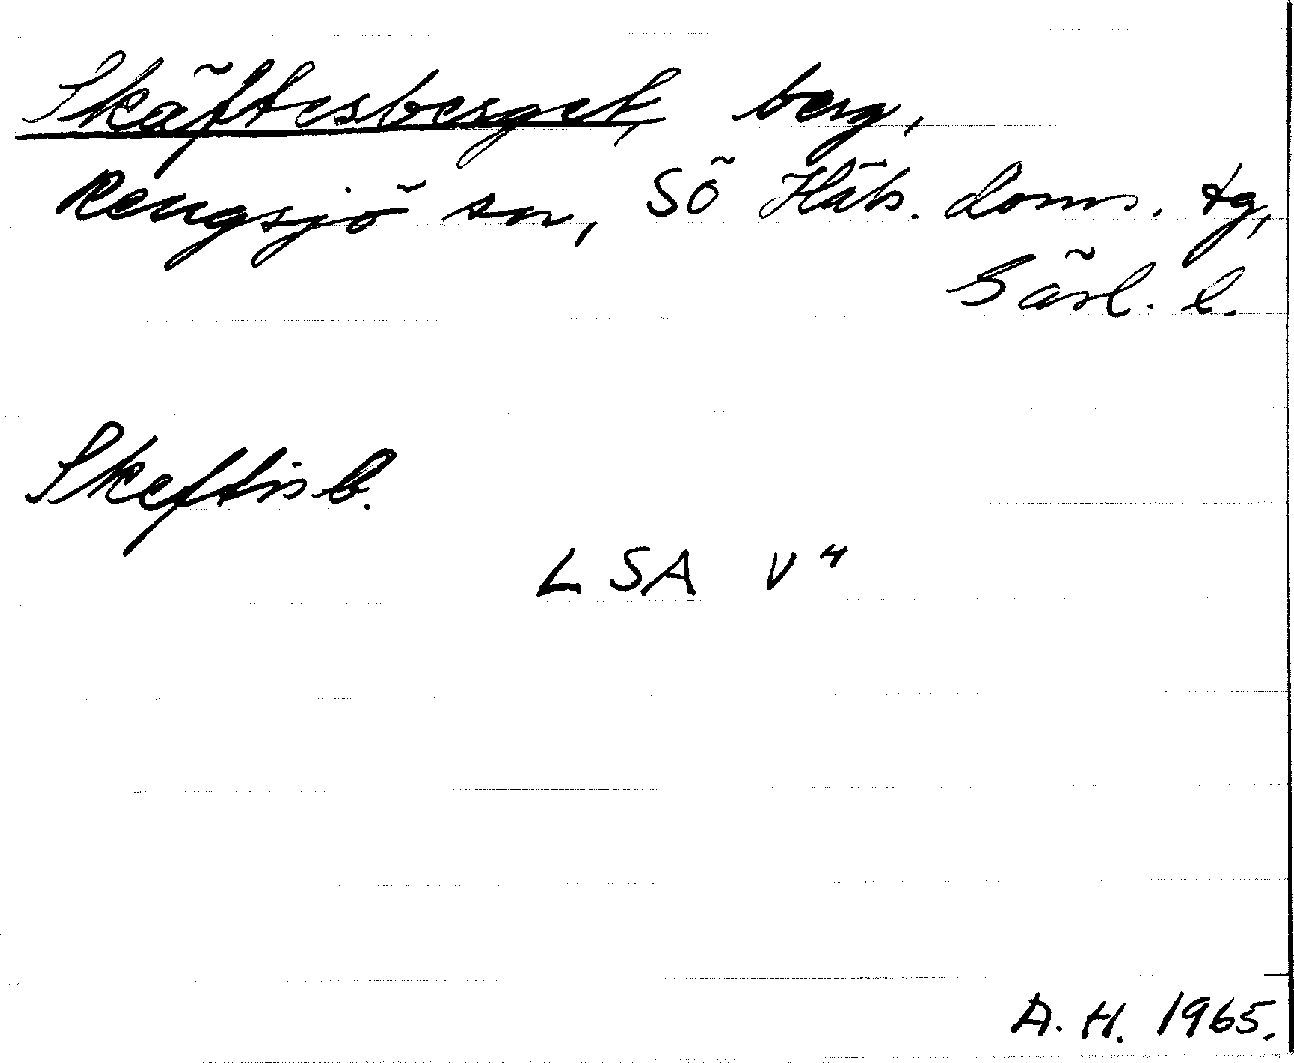 Skäftesberget, berg,
Rengsjö sn, Sö Häls. doms. tg,
Gävl. l.
Skeftisb.
LSA V4
A. H. 1965.